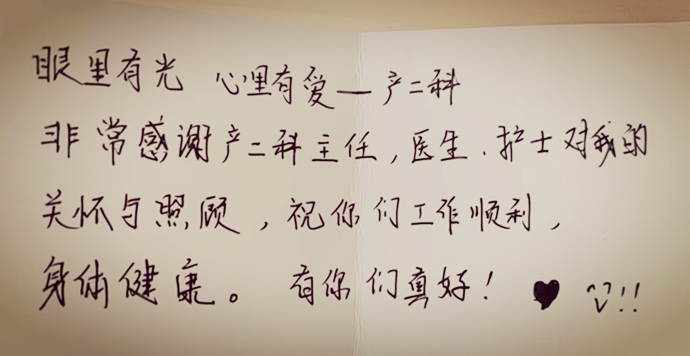 眼里有光 心里有爱—产二科
非常感谢产二科主任,医生.护士对我的
关怀与照顾,祝你们工作顺利,
身体健康。有你们真好!♥ ^▽^!!